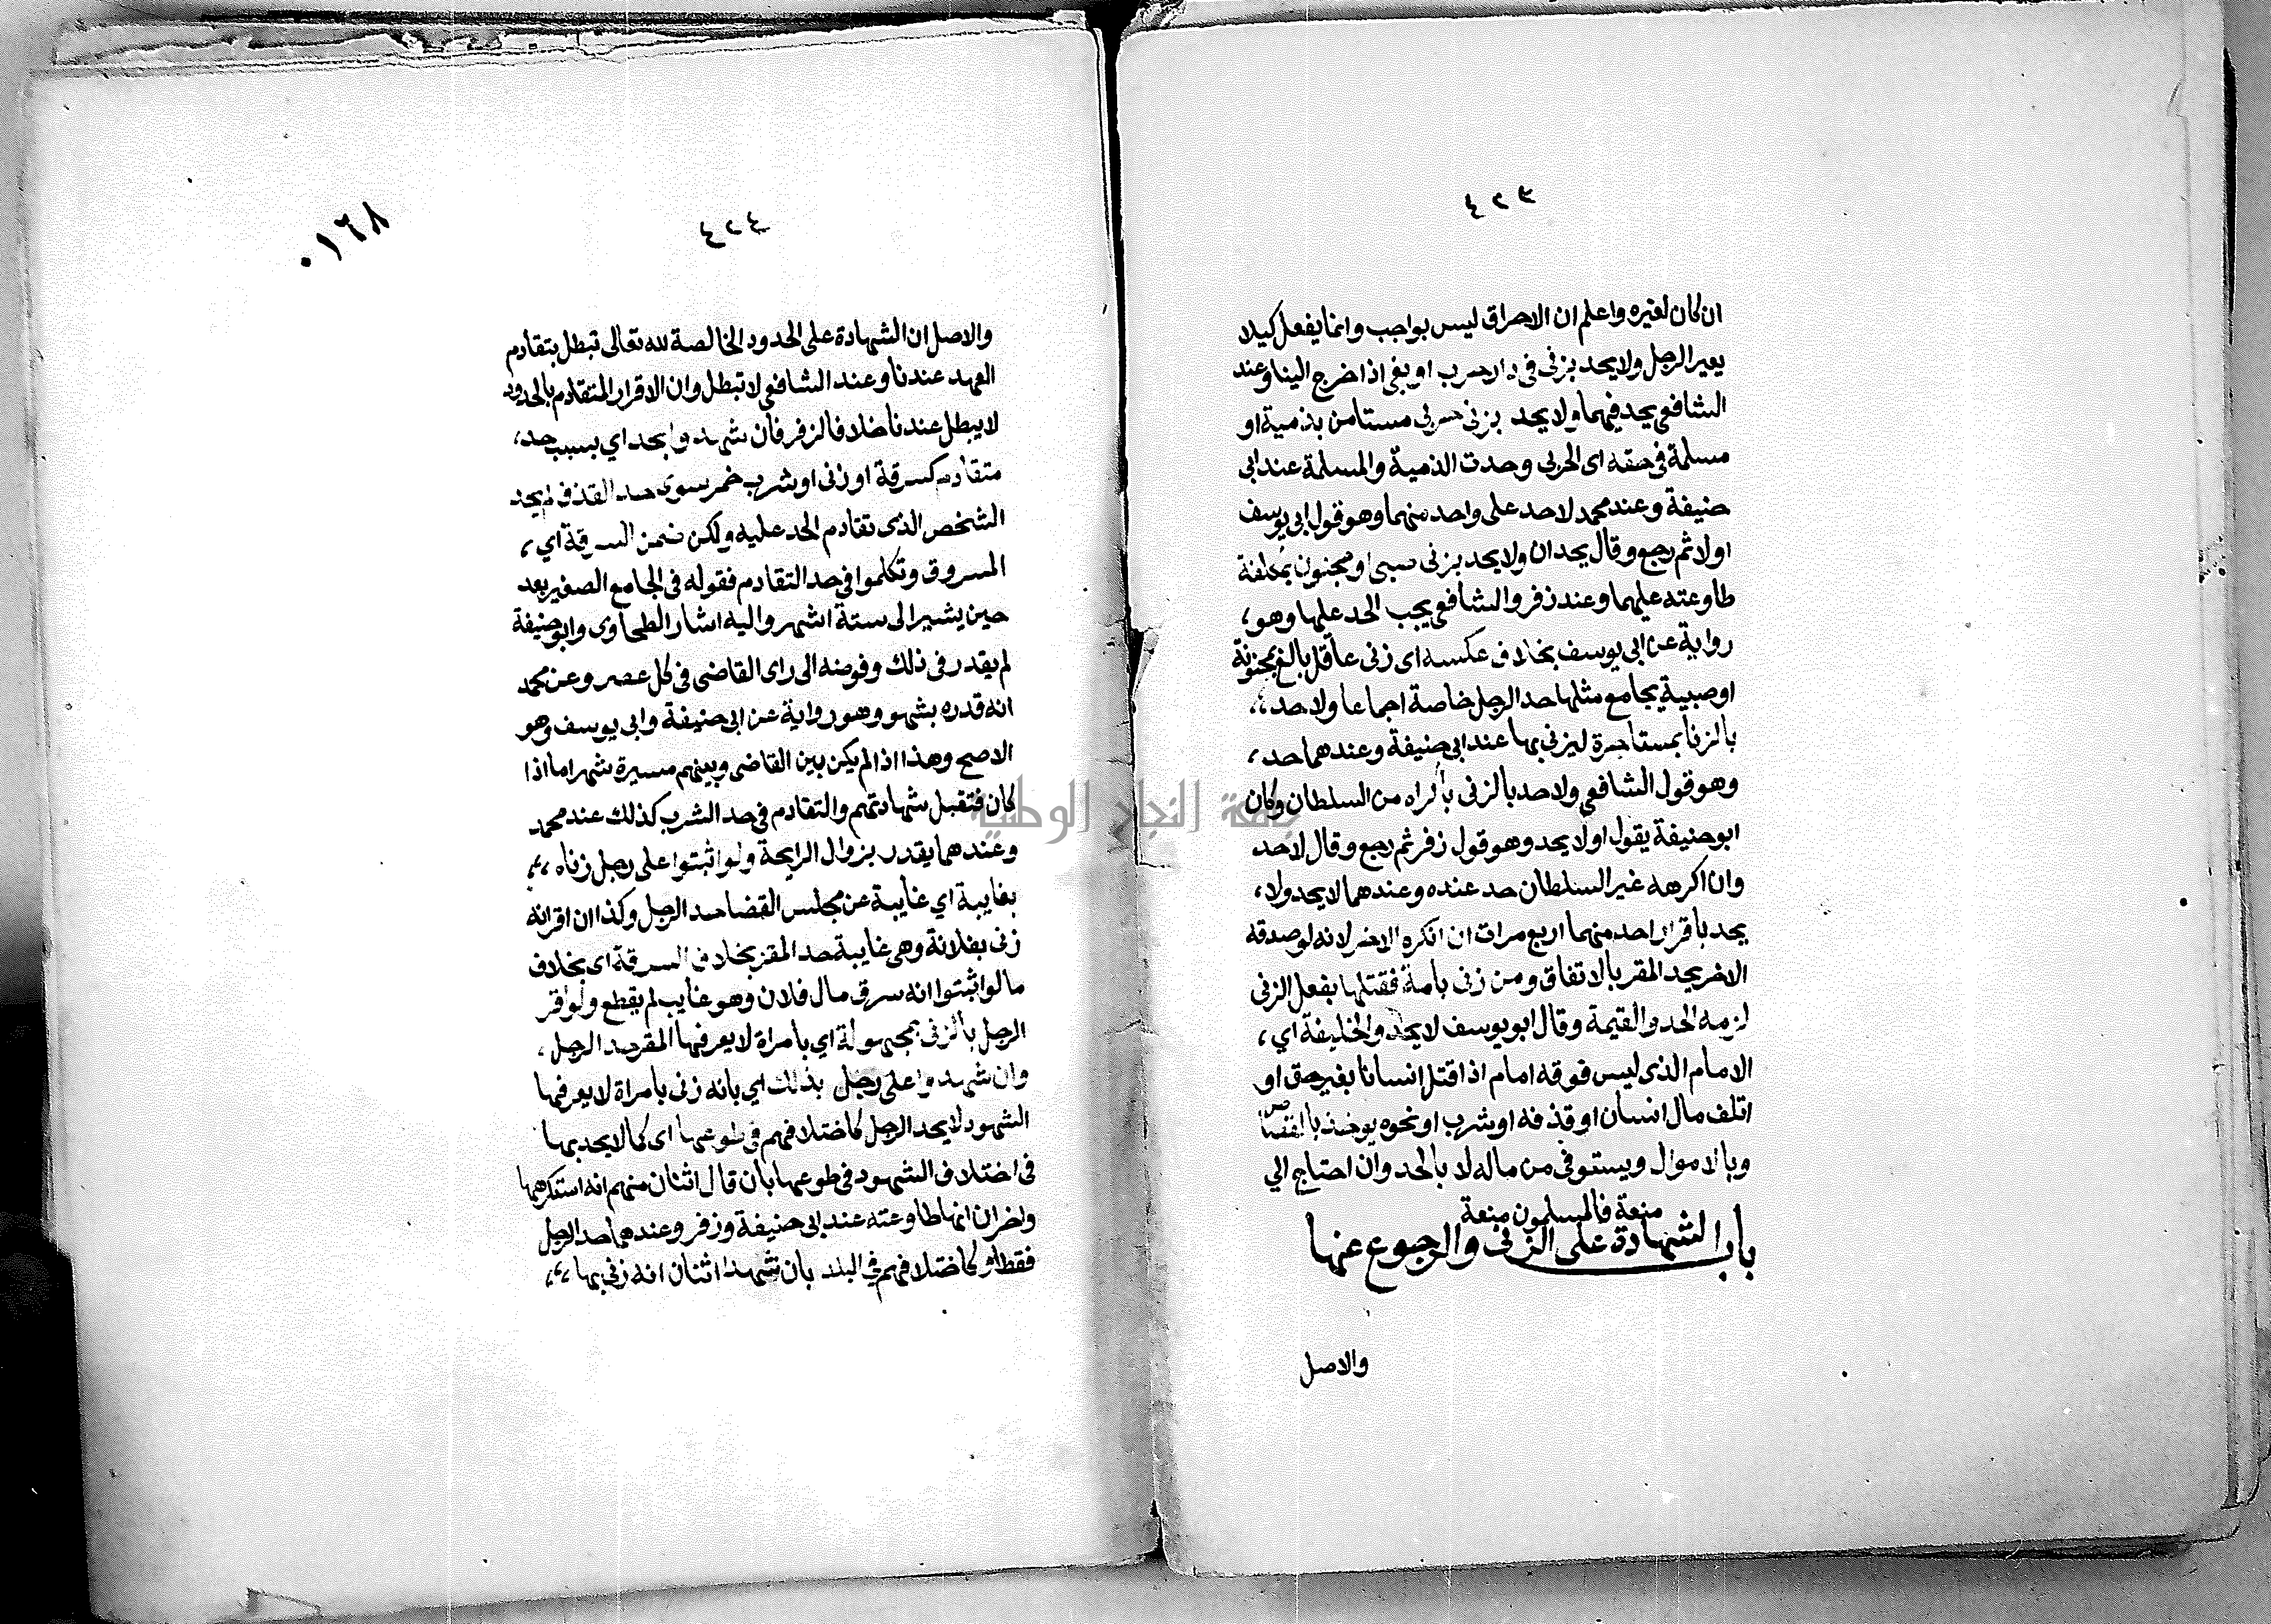 ٤٢٣
ان كان لغيره واعلم ان الاحراق ليس بواجب وانما يفعل كيلا
يعير الرجل ولا يحد بزنى في دار حرب او بغى اذا خرج الينا وعند
الشافعي يحد فيهما ولا يحد بزنى حربي مستامن بذمية او
مسلمة في حقه اى الحربي وحدت الذمية والمسلمة عند ابي
حنيفة وعند محمد لا حد على واحد منهما وهو قول ابي يوسف
اولا ثم رجع وقال يحدان ولا يحد بزنى صبى او مجنون بمكلفة
طاوعته عليهما وعند زفر والشافعي يجب الحد عليها وهو،
رواية عن ابي يوسف بخلاف عكسه اى زنى عاقل بالغ بمجنونة
او صبية يجامع مثلها حد الرجل خاصة اجماعا ولا حد،،
بالزنا بمستاجرة ليزنى بها عند ابي حنيفة وعندهما حد،
وهو قول الشافعي ولا حد بالزنى باكراه من السلطان وكان
ابو حنيفة يقول اولا يحد وهو قول زفر ثم رجع وقال لا حد
وان اكرهه غير السلطان حد عنده وعندهما لا يحد ولا،
يحد باقرار احد منهما اربع مرات ان انكره الاخر لانه لو صدقه
الاخر يحد المقر بالاتفاق ومن زنى بامة فقتلها بفعل الزنى
لزمه الحد والقيمة وقال ابو يوسف لا يحد والخليفة اي،
الامام الذى ليس فوقه امام اذا قتل انسانا بغير حق او
اتلف مال انسان او قذفه او شرب او نحوه يوخذ بالقصاص
وبالاموال ويستوفى من ماله لا بالحد وان احتاج الي
منعة فالمسلمون منعة
باب الشهادة على الزنى والرجوع عنها
والاصل
٠١٦٨
٤٢٤
والاصل ان الشهادة على الحدود الخالصة لله تعالى تبطل بتقادم
العهد عندنا وعند الشافعي لا تبطل وان الاقرار المتقادم بالحدود
لا يبطل عندنا خلافا لزفر فان شهدوا بحد اي بسبب حد،
متقادم كسرقة او زنى او شرب خمر سوى حد القذف لم يحد
الشخص الذى تقادم الحد عليه ولكن ضمن السرقة اي،
المسروق وتكلموا في حد التقادم فقوله في الجامع الصغير بعد
حين يشير الى ستة اشهر واليه اشار الطحاوى وابو حنيفة
لم يقدر في ذلك وفوضه الى راى القاضى في كل عصر وعن محمد
انه قدره بشهر وهو رواية عن ابي حنيفة وابي يوسف وهو
الاصح وهذا اذا لم يكن بين القاضى وبينهم مسيرة شهر اما اذا
كان فتقبل شهادتهم والتقادم في حد الشرب كذلك عند محمد
وعندهما يقدر بزوال الرايحة ولو اثبتوا على رجل زناه،،
بغايبة اي غايبة عن مجلس القضا حد الرجل وكذا ان اقر انه
زنى بفلانة وهي غايبة حد المقر بخلاف السرقة اى بخلاف
ما لو اثبتوا انه سرق مال فلان وهو غايب لم يقطع ولو اقر
الرجل بالزنى بمجهولة اي بامراة لا يعرفها المقر حد الرجل،
وان شهدوا على رجل بذلك اي بانه زنى بامراة لا يعرفها
الشهود لا يحد الرجل كاختلافهم في طوعها اى كما لا يحد بها
في اختلاف الشهود في طوعها بان قال اثنان منهم انه استكرهها
واخران انها طاوعته عند ابي حنيفة وزفر وعندهما حد الرجل
فقط او كاختلافهم في البلد بان شهد اثنان انه زنى بها،،،
جامعة النجاح الوطنية